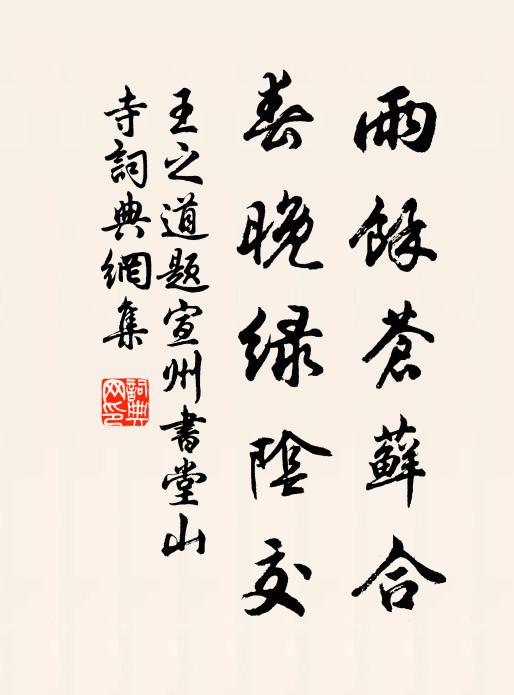 雨餘蒼蘚合
春晚緑陰交
王之道題宣州書堂山
寺詞典網集
詞典網印